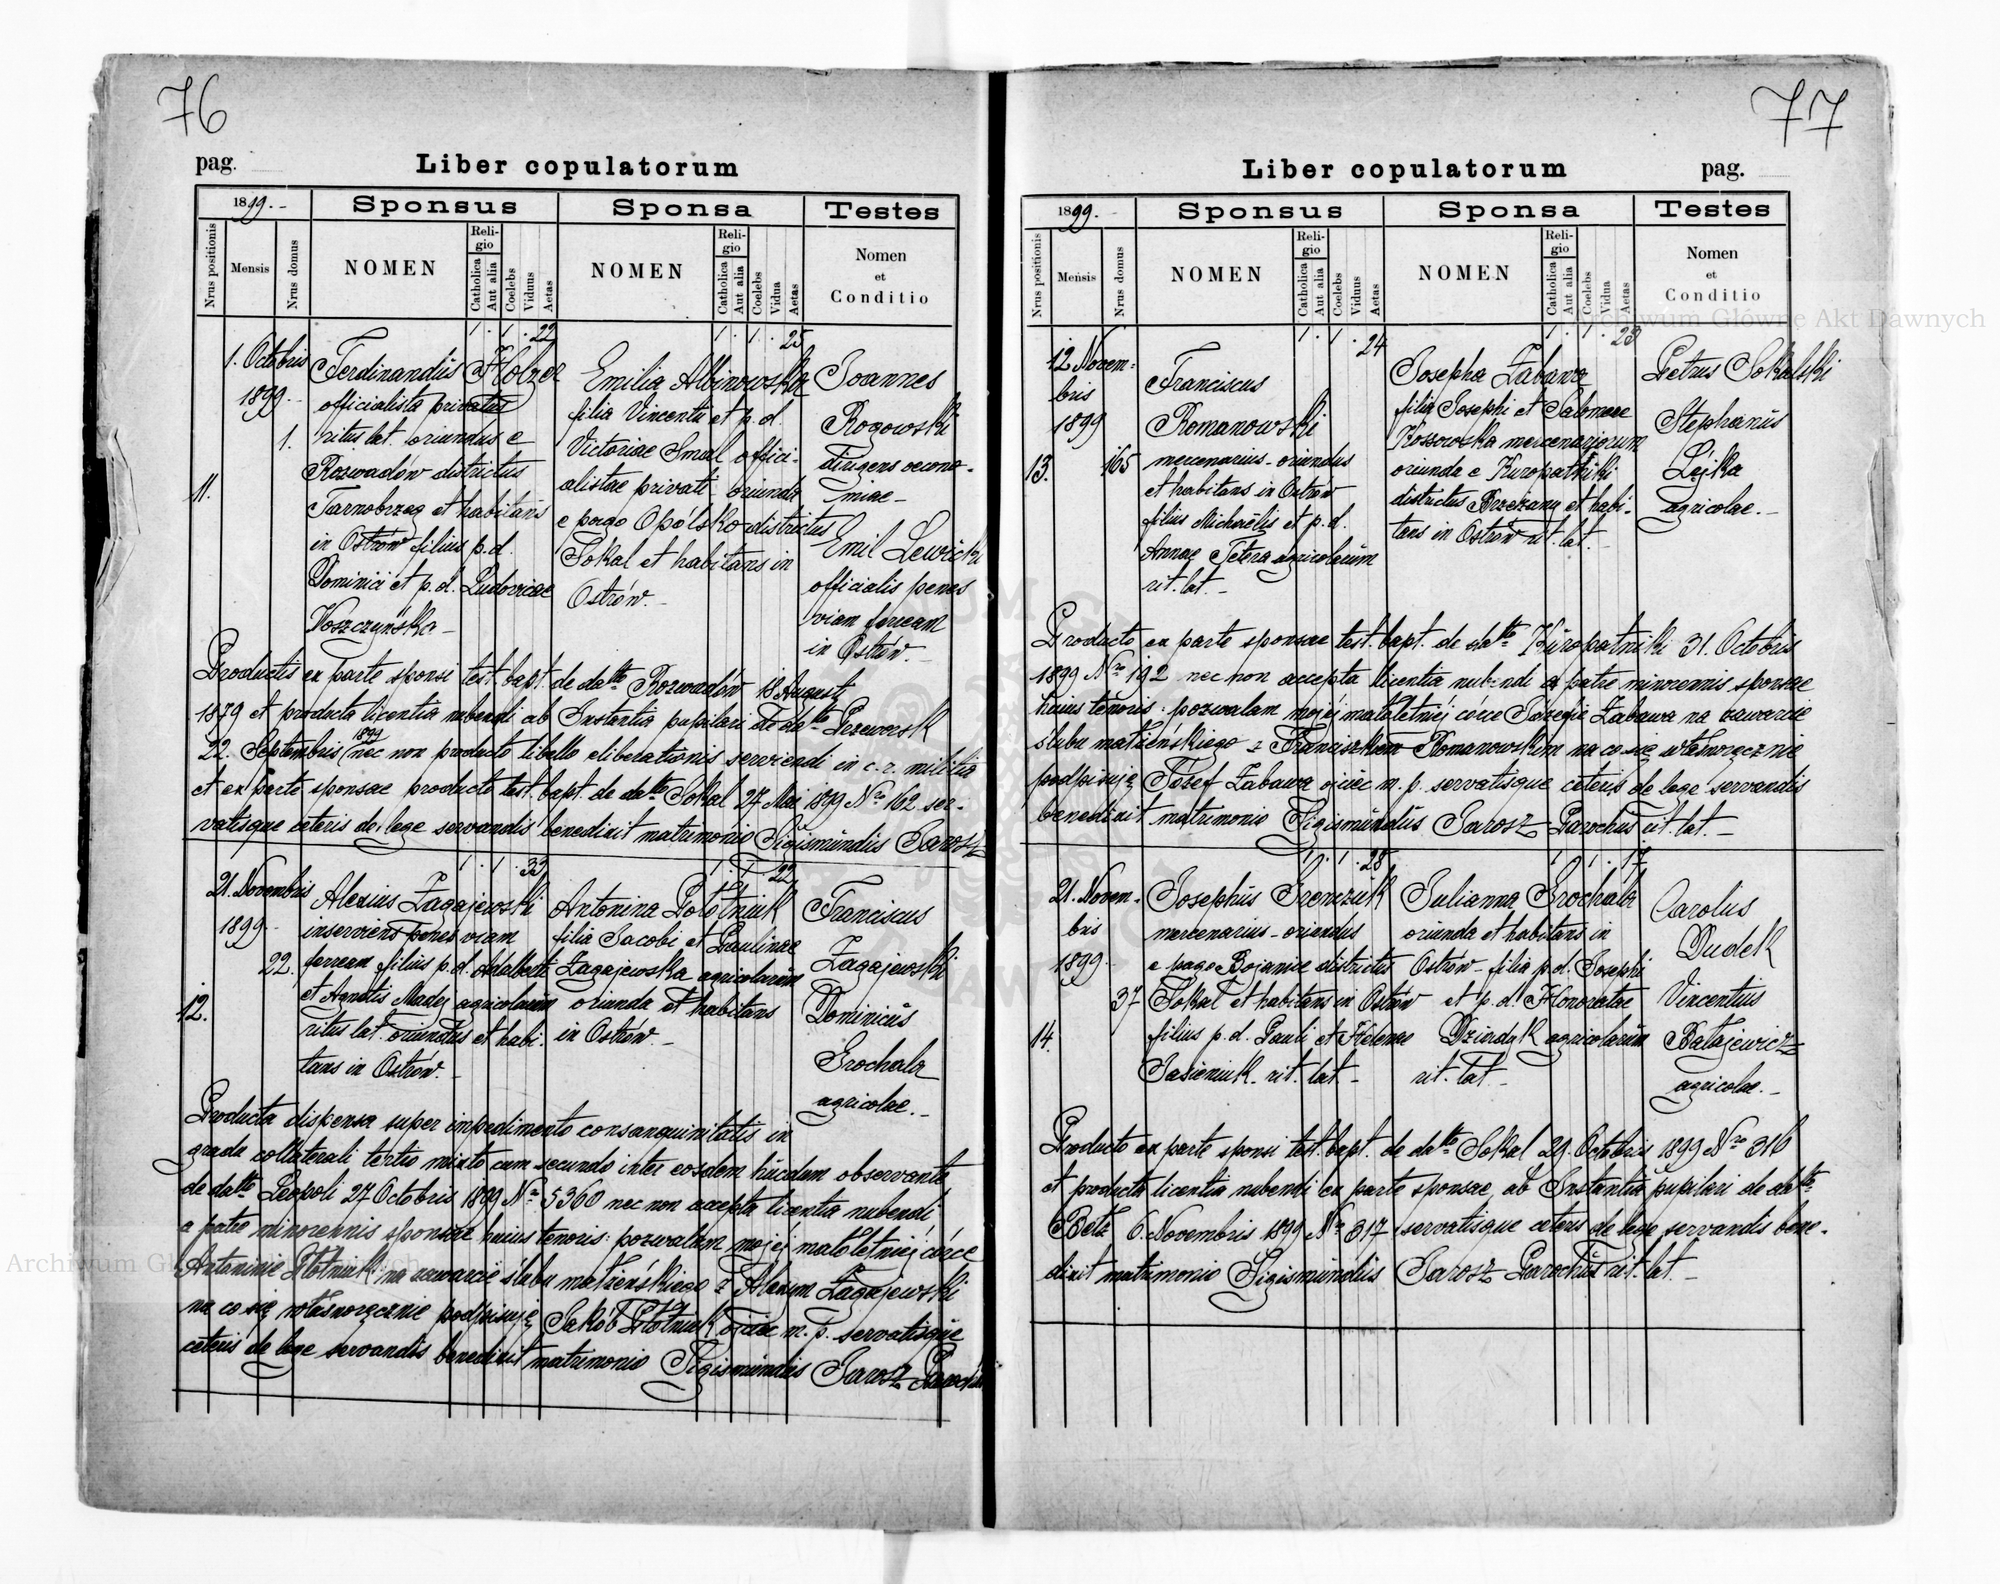 76
pag.
Liber copulatorum
1899.
Sponsus
Sponsa
Testes
Nrus positionis
Mensis
Nrus domus
NOMEN
Religio
Catholica
Aut alia
Coelebs
Viduus
Aetas
NOMEN
Religio
Catholica
Aut alia
Coelebs
Vidua
Aetas
Nomen
et
Conditio
11.
1. Octobris
1899.
1.
1 . 1 . 22
Ferdinandus Holzer
officialista privatus
ritus lat. oriundus e
Rozwadów districtus
Tarnobrzeg et habitans
in Ostrów filius p.d.
Dominici et p.d. Ludovicae
Woszczyńska
1 . 1 . 25
Emilia Albinowska
filia Vincentii et p.d.
Victoriae Smal offici-
alistae privati oriunda
e pago Opólsko districtus
Sokal et habitans in
Ostrów.
Joannes
Rogowski
dirigens oecono-
miae
Emil Lewicki
officialis penes
viam ferream
in Ostrów.
Productis ex parte sponsi test. bapt. de datto Rozwadów 18 August
1879 et producta licentia nubendi ab Instantia pupilari de datto Przeworsk
22. Septembris 1899 nec non producto libello eliberationis serviendi in c. r. militia
et ex parte sponsae producto test. bapt. de datto Sokal 27 Mai 1899 Nro 162 ser-
vatisque ceteris de lege servandis benedixit matrimonio Sigismundus Jarosz
12.
21. Novembris
1899
22.
1 . 1 . 33
Alexius Zagajewski
inserviens penes viam
ferream filius p.d. Adalberti
et Agnetis Madej agricolarum
ritus lat. oriundus et habi-
tans in Ostrów.
1 . 1 22
Antonina Płótniuk
filia Jacobi et Paulinae
Zagajewska agricolarum
oriunda et habitans
in Ostrów.
Franciscus
Zagajewski
Dominicus
Brochala
agricolae.
Producta dispensa super impedimento consanquinitatis in
gradu collaterali tertio mixto cum secundo inter eosdem hucdum observante
de datto Leopoli 27 Octobris 1899 Nro 5360 nec non accepta licentia nubendi
a patre minorennis sponsae huius tenoris: pozwalam mojej małoletniej córce
Antoninie Płótniuk na zawarcie ślubu małżeńskiego z Alexym Zagajewski
na co się własnoręcznie podpisuję Jakób Płótniuk ojciec m. p. servatisque
ceteris de lege servandis benedixit matrimonio Sigismundus Jarosz Parochus
77
Liber copulatorum
pag.
1899.
Sponsus
Sponsa
Testes
Nrus positionis
Mensis
Nrus domus
NOMEN
Religio
Catholica
Aut alia
Coelebs
Viduus
Aetas
NOMEN
Religio
Catholica
Aut alia
Coelebs
Vidua
Aetas
Nomen
et
Conditio
13.
12 Novem-
bris
1899
165
1 . 1 . 24
Franciscus
Romanowski
mercenarius - oriundus
et habitans in Ostrów
filius Michaëlis et p.d.
Annae Tetera agricolarum
rit. lat.
1 . 1 . 23
Josepha Zabawa
filia Josephi et Salomeae
Kossowska mercenariorum
oriunda e Kuropatniki
districtus Brzeżany et habi-
tans in Ostrów rit. lat.
Petrus Sokalski
Stephanus
Lejka
agricolae.
Producto ex parte sponsae test. bapt. de datto Kuropatniki 31. Octobris
1899 Nro 192 nec non accepta licentia nubendi a patre minorennis sponsae
huius tenoris: pozwalam mojéj małoletniéj córce Józefie Zabawa na zawarcie
ślubu małżeńskiego z Franciszkem Romanowskim na co się własnoręcznie
podpisuję Józef Zabawa ojciec m. p. servatisque ceteris de lege servandis
benedixit matrimonio Sigismundus Jarosz Parochus rit. lat.
14.
21. Novem-
bris
1899
37
1 . 1 . 28
Josephus Iremczuk
mercenarius - oriundus
e pago Bojanice districtus
Sokal et habitans in Ostrów
filius p.d. Pauli et Helenae
Jasieniuk. rit. lat.
1 1 . 17
Julianna Brochala
oriunda et habitans in
Ostrów - filia p.d. Josephi
et p.d. Honoratae
Dziadyk agricolarum
rit. lat
Carolus
Dudek
Vincentius
Batajewicz
agricolae.
Producto ex parte sponsi test. bapt. de datto Sokal 29. Octobris 1899 Nro 316
et producta licentia nubendi ex parte sponsae ab Instantia pupilari de datto
Bełz 6. Novembris 1899 Nro 317 servatisque ceteris de lege servandis bene-
dixit matrimonio Sigismundus Jarosz Parochus rit. lat.
Archiwum Główne Akt Dawnych